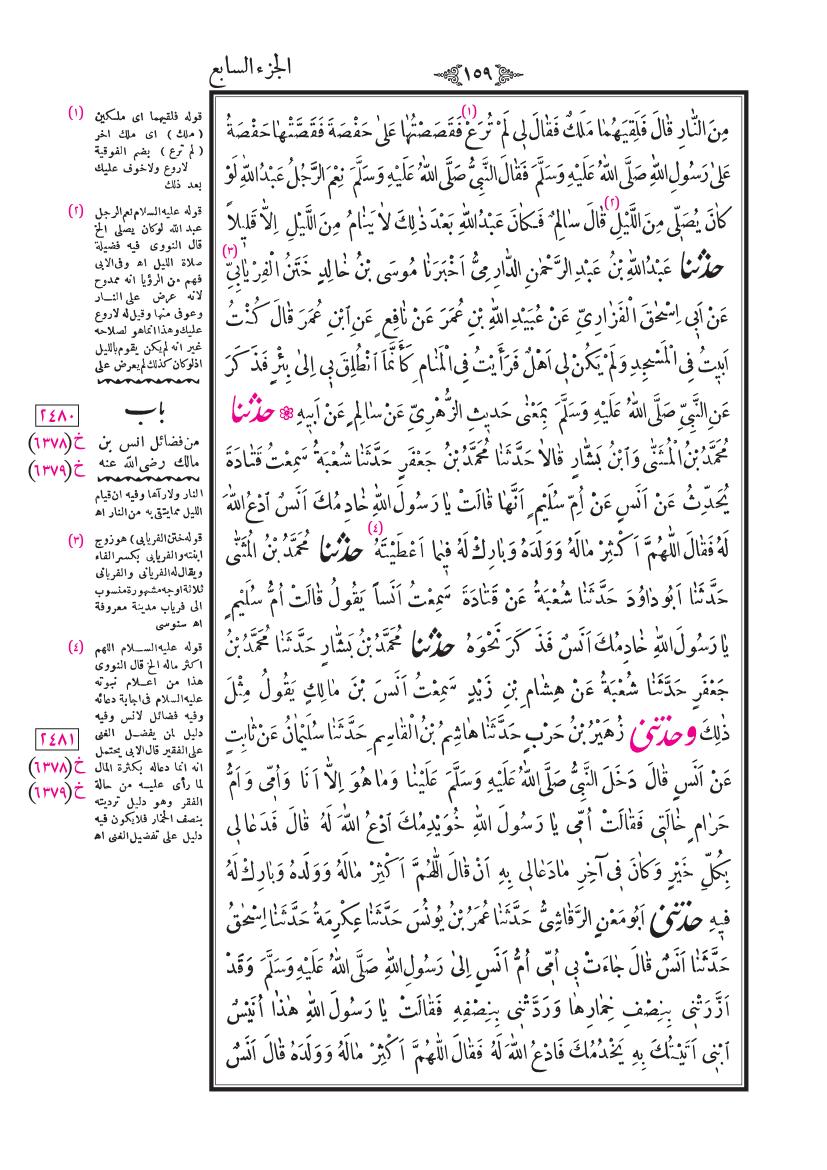 الجزء السابع
١٥٩
مِنَ النَّارِ قَالَ فَلَقِيَهُمَا مَلَكٌ فَقَالَ لِى لَمْ تُرَعْ (١) فَقَصَصْتُهَا عَلىٰ حَفْصَةَ فَقَصَّتْهَا حَفْصَةُ
عَلىٰ رَسُولِ اللهِ صَلَّى اللهُ عَلَيْهِ وَسَلَّمَ فَقَالَ النَّبِىُّ صَلَّى اللهُ عَلَيْهِ وَسَلَّمَ نِعْمَ الرَّجُلُ عَبْدُ اللهِ لَوْ
كَانَ يُصَلِّى مِنَ اللَّيْلِ (٢) قَالَ سَالِمٌ فَكَانَ عَبْدُ اللهِ بَعْدَ ذٰلِكَ لَا يَنَامُ مِنَ اللَّيْلِ اِلَّا قَلِيلاً
حدثنا عَبْدُ اللهِ بْنُ عَبْدِ الرَّحْمٰنِ الدَّارِمِىُّ اَخْبَرَنَا مُوسَى بْنُ خَالِدٍ خَتَنُ الْفِرْيَابِىِّ (٣)
عَنْ اَبِى اِسْحٰقَ الْفَزَارِىِّ عَنْ عُبَيْدِ اللهِ بْنِ عُمَرَ عَنْ نَافِعٍ عَنِ ابْنِ عُمَرَ قَالَ كُنْتُ
اَبِيتُ فِى الْمَسْجِدِ وَلَمْ يَكُنْ لِى اَهْلٌ فَرَأَيْتُ فِى الْمَنَامِ كَأَنَّمَا اَنْطُلِقَ بِى اِلىٰ بِئْرٍ فَذَكَرَ
عَنِ النَّبِىِّ صَلَّى اللهُ عَلَيْهِ وَسَلَّمَ بِمَعْنٰى حَدِيثِ الزُّهْرِىِّ عَنْ سَالِمٍ عَنْ اَبِيهِ ❁ حدثنا
مُحَمَّدُ بْنُ الْمُثَنّٰى وَابْنُ بَشَّارٍ قَالَا حَدَّثَنَا مُحَمَّدُ بْنُ جَعْفَرٍ حَدَّثَنَا شُعْبَةُ سَمِعْتُ قَتَادَةَ
يُحَدِّثُ عَنْ اَنَسٍ عَنْ اُمِّ سُلَيْمٍ اَنَّهَا قَالَتْ يَا رَسُولَ اللهِ خَادِمُكَ اَنَسٌ ادْعُ اللهَ
لَهُ فَقَالَ اللّٰهُمَّ اَكْثِرْ مَالَهُ وَوَلَدَهُ وَبَارِكْ لَهُ فِيمَا اَعْطَيْتَهُ (٤) حدثنا مُحَمَّدُ بْنُ الْمُثَنّٰى
حَدَّثَنَا اَبُو دَاوُدَ حَدَّثَنَا شُعْبَةُ عَنْ قَتَادَةَ سَمِعْتُ اَنَساً يَقُولُ قَالَتْ اُمُّ سُلَيْمٍ
يَا رَسُولَ اللهِ خَادِمُكَ اَنَسٌ فَذَكَرَ نَحْوَهُ حدثنا مُحَمَّدُ بْنُ بَشَّارٍ حَدَّثَنَا مُحَمَّدُ بْنُ
جَعْفَرٍ حَدَّثَنَا شُعْبَةُ عَنْ هِشَامِ بْنِ زَيْدٍ سَمِعْتُ اَنَسَ بْنَ مَالِكٍ يَقُولُ مِثْلَ
ذٰلِكَ وحدثنى زُهَيْرُ بْنُ حَرْبٍ حَدَّثَنَا هَاشِمُ بْنُ الْقَاسِمِ حَدَّثَنَا سُلَيْمَانُ عَنْ ثَابِتٍ
عَنْ اَنَسٍ قَالَ دَخَلَ النَّبِىُّ صَلَّى اللهُ عَلَيْهِ وَسَلَّمَ عَلَيْنَا وَمَا هُوَ اِلَّا اَنَا وَاُمِّى وَاُمُّ
حَرَامٍ خَالَتِى فَقَالَتْ اُمِّى يَا رَسُولَ اللهِ خُوَيْدِمُكَ ادْعُ اللهَ لَهُ قَالَ فَدَعَا لِى
بِكُلِّ خَيْرٍ وَكَانَ فِى آخِرِ مَا دَعَا لِى بِهِ اَنْ قَالَ اللّٰهُمَّ اَكْثِرْ مَالَهُ وَوَلَدَهُ وَبَارِكْ لَهُ
فِيهِ حدثنى اَبُو مَعْنٍ الرَّقَاشِىُّ حَدَّثَنَا عُمَرُ بْنُ يُونُسَ حَدَّثَنَا عِكْرِمَةُ حَدَّثَنَا اِسْحٰقُ
حَدَّثَنَا اَنَسٌ قَالَ جَاءَتْ بِى اُمِّى اُمُّ اَنَسٍ اِلىٰ رَسُولِ اللهِ صَلَّى اللهُ عَلَيْهِ وَسَلَّمَ وَقَدْ
اَزَّرَتْنِى بِنِصْفِ خِمَارِهَا وَرَدَّتْنِى بِنِصْفِهِ فَقَالَتْ يَا رَسُولَ اللهِ هٰذَا اُنَيْسٌ
ابْنِى اَتَيْتُكَ بِهِ يَخْدُمُكَ فَادْعُ اللهَ لَهُ فَقَالَ اللّٰهُمَّ اَكْثِرْ مَالَهُ وَوَلَدَهُ قَالَ اَنَسٌ
(١) قوله فلقيهما اى ملكين
(ملك) اى ملك اخر
(لم ترع) بضم الفوقية
لاروع ولاخوف عليك
بعد ذلك
(٢) قوله عليه السلام نعم الرجل
عبد الله لوكان يصلى الخ
قال النووى فيه فضيلة
صلاة الليل اه وفى الابى
فهم من الرؤيا انه ممدوح
لانه عرض على النار
وعوفى منها وقيل له لاروع
عليك وهذا انما هو لصلاحه
غير انه لم يكن يقوم بالليل
اذ لوكان كذلك لم يعرض على
باب
٢٤٨٠
من فضائل انس بن
خ (٦٣٧٨)
مالك رضى الله عنه
خ (٦٣٧٩)
النار ولارآها وفيه ان قيام
الليل مما يتقى به من النار اه
(٣) قوله ختن الفريابى) هو زوج
ابنته والفريابى بكسر الفاء
ويقال له الفريابى والفريابى
ثلاثة اوجه مشهورة منسوب
الى فرياب مدينة معروفة
اه سنوسى
(٤) قوله عليه السلام اللهم
اكثر ماله الخ قال النووى
هذا من اعلام نبوته
عليه السلام فى اجابة دعائه
وفيه فضائل لانس وفيه
دليل لمن يفضل الغنى
٢٤٨١
على الفقير قال الابى يحتمل
خ (٦٣٧٨)
انه انما دعا له بكثرة المال
لما رأى عليه من حالة
خ (٦٣٧٩)
الفقر وهو دليل ترديته
بنصف الخمار فلايكون فيه
دليل على تفضيل الغنى اه